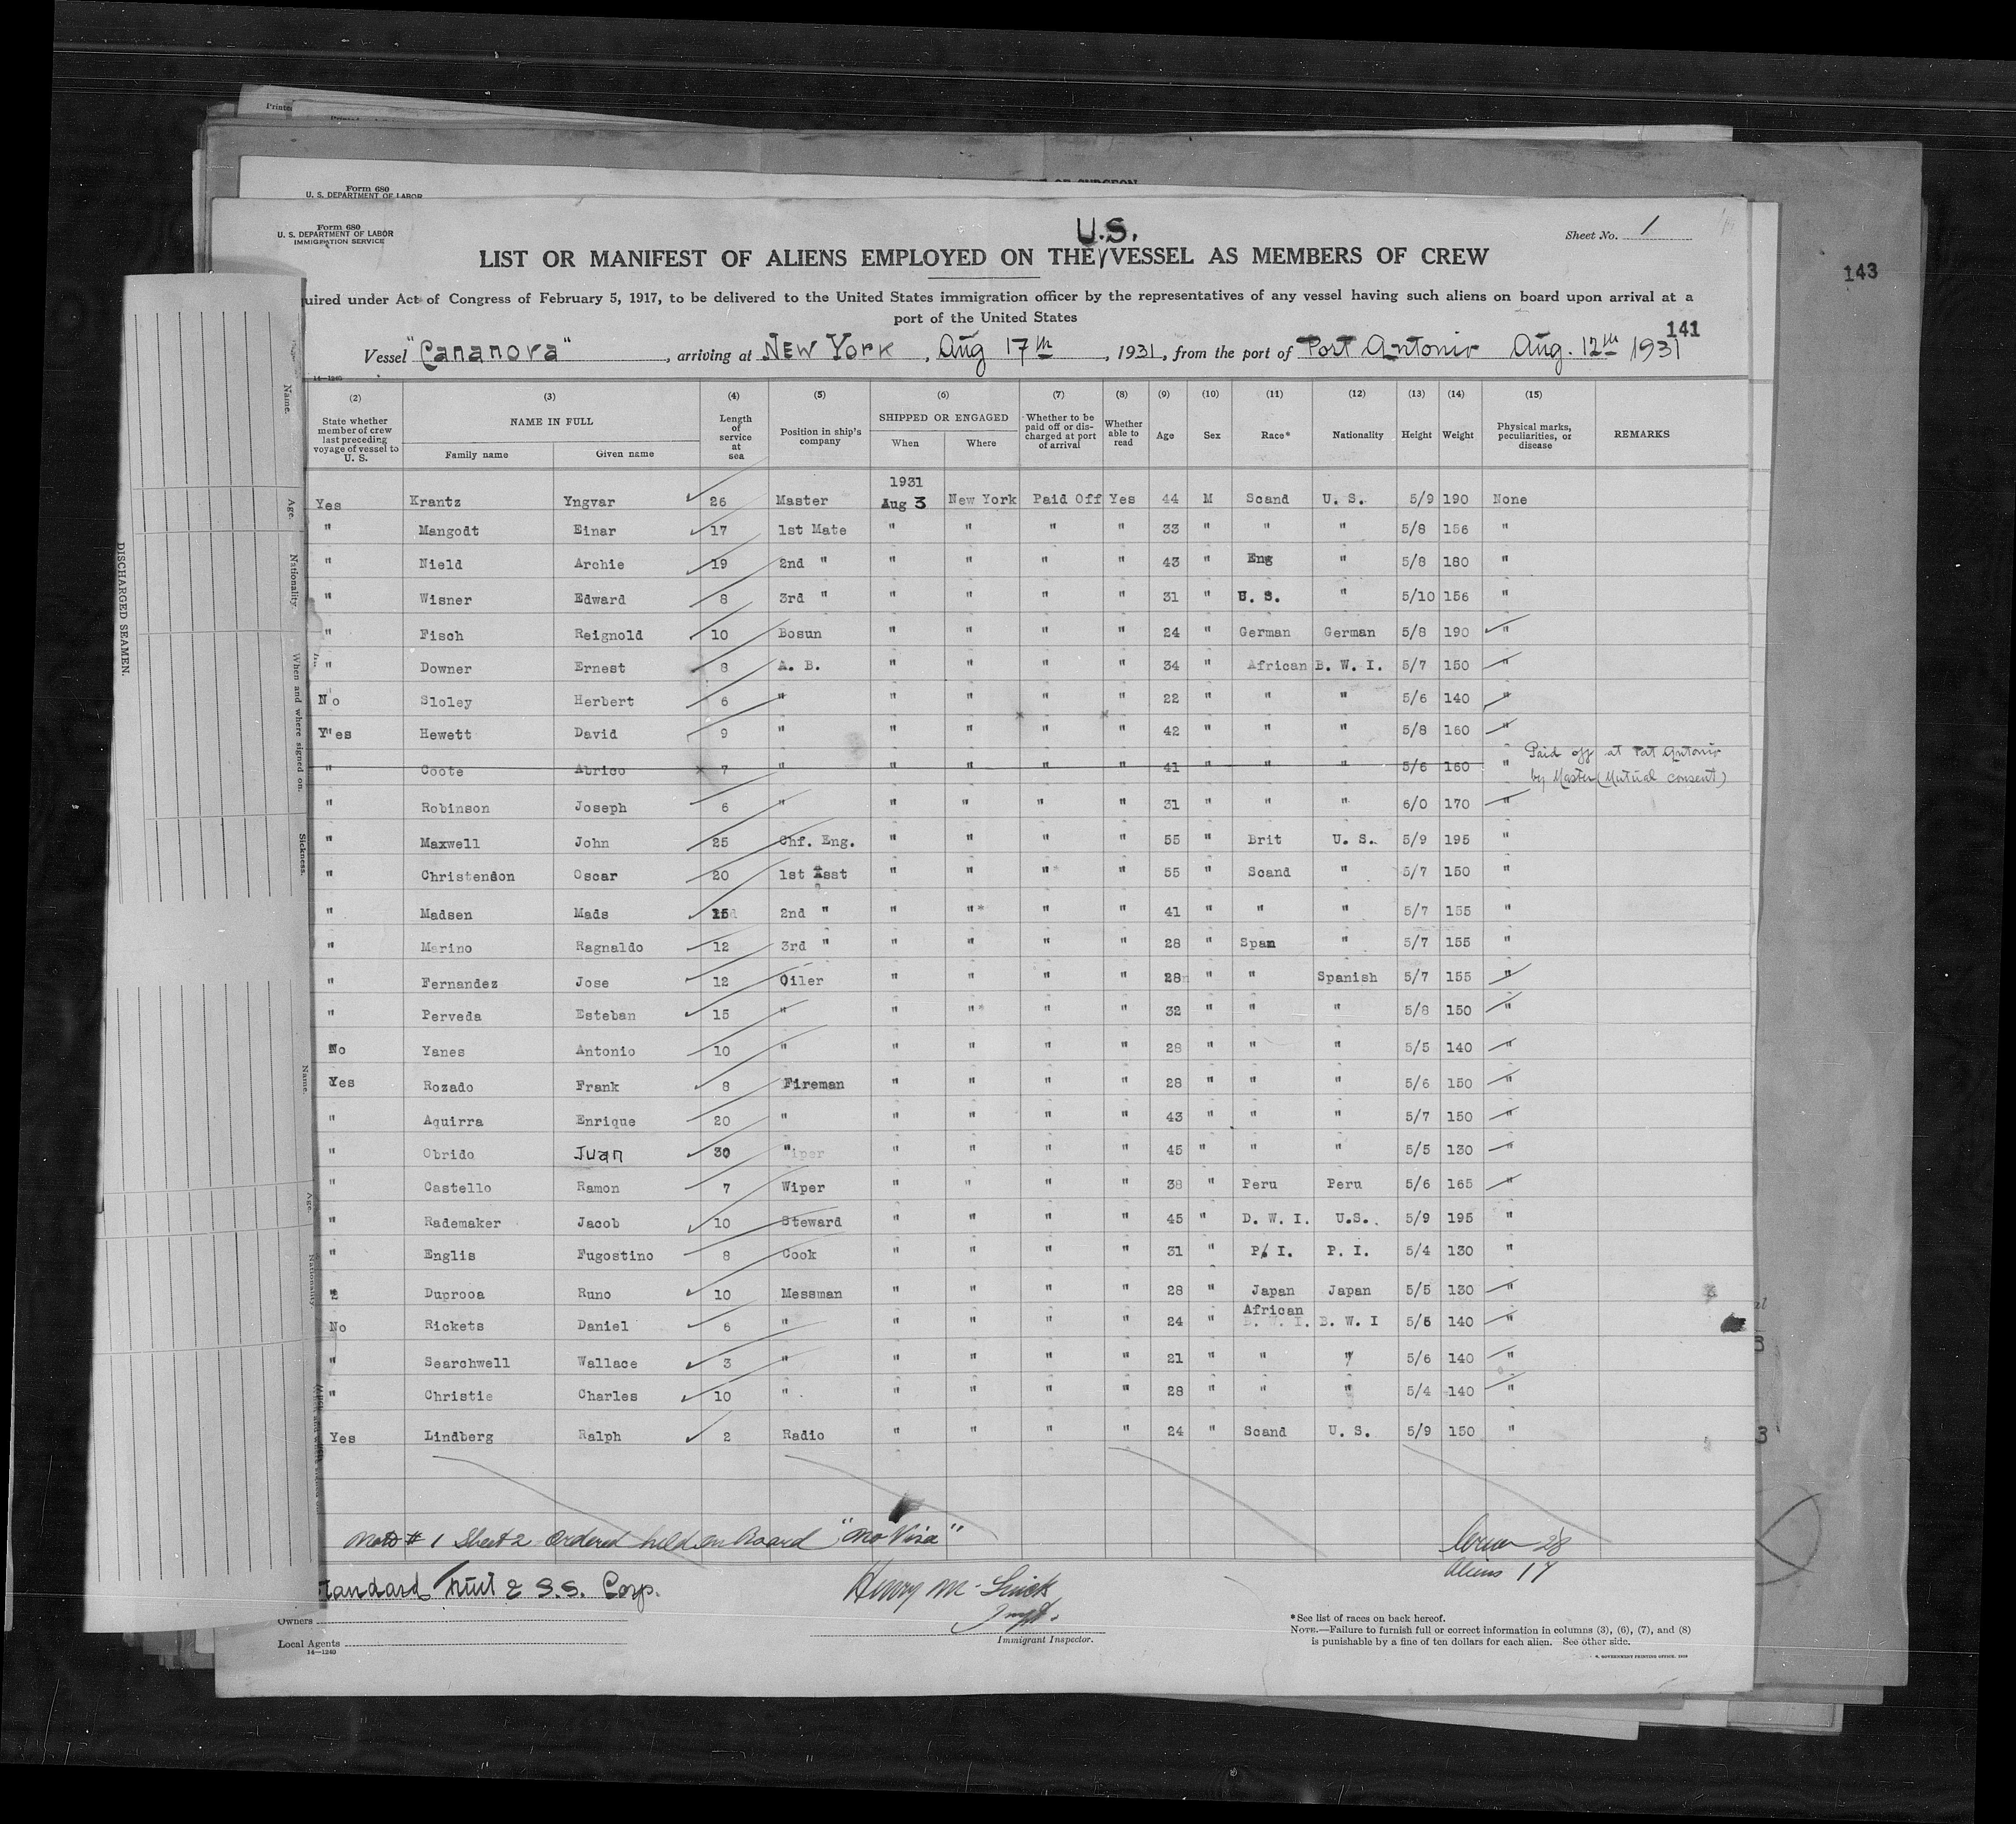 Form 680
U. S. DEPARTMENT OF LABOR
Form 680
U. S. DEPARTMENT OF LABOR
IMMIGRATION SERVICE
Sheet No. 1
143
U.S.
LIST OR MANIFEST OF ALIENS EMPLOYED ON THE VESSEL AS MEMBERS OF CREW
uired under Act of Congress of February 5, 1917, to be delivered to the United States immigration officer by the representatives of any vessel having such aliens on board upon arrival at a
port of the United States
141
Vessel "Cananova", arriving at New York, Aug 17th, 1931, from the port of Port Antonio Aug. 12th 1931
14—1240
(2) (3) (4) (5) (6) (7) (8) (9) (10) (11) (12) (13) (14) (15)
State whether member of crew last preceding voyage of vessel to U. S. NAME IN FULL Family name Given name Length of service at sea Position in ship's company SHIPPED OR ENGAGED When Where Whether to be paid off or discharged at port of arrival Whether able to read Age Sex Race* Nationality Height Weight Physical marks, peculiarities, or disease REMARKS
1931
Yes Krantz Yngvar 26 Master Aug 3 New York Paid Off Yes 44 M Scand U. S. 5/9 190 None
" Mangodt Einar 17 1st Mate " " " " 33 " " " 5/8 156 "
" Nield Archie 19 2nd " " " " " 43 " Eng " 5/8 180 "
" Wisner Edward 8 3rd " " " " " 31 " U. S. " 5/10 156 "
" Fisch Reignold 10 Bosun " " " " 24 " German German 5/8 190 "
" Downer Ernest 8 A. B. " " " " 34 " African B. W. I. 5/7 150 "
No Sloley Herbert 6 " " " " " 22 " " " 5/6 140 "
Yes Hewett David 9 " " " " " 42 " " " 5/8 160 "
" Coote Abrico 7 " " " " " 41 " " " 5/6 160 " Paid off at Port Antonio
by Master (Mutual consent)
" Robinson Joseph 6 " " " " " 31 " " " 6/0 170 "
" Maxwell John 25 Chf. Eng. " " " " 55 " Brit U. S. 5/9 195 "
" Christendon Oscar 20 1st Asst " " " " 55 " Scand " 5/7 150 "
" Madsen Mads 15 2nd " " " " " 41 " " " 5/7 155 "
" Merino Ragnaldo 12 3rd " " " " " 28 " Span " 5/7 155 "
" Fernandez Jose 12 Oiler " " " " 28 " " Spanish 5/7 155 "
" Perveda Esteban 15 " " " " " 32 " " " 5/8 150 "
No Yanes Antonio 10 " " " " " 28 " " " 5/5 140 "
Yes Rozado Frank 8 Fireman " " " " 28 " " " 5/6 150 "
" Aquirra Enrique 20 " " " " " 43 " " " 5/7 150 "
" Obrido Juan 30 " " " " " 45 " " " 5/5 130 "
" Castello Ramon 7 Wiper " " " " 38 " Peru Peru 5/6 165 "
" Rademaker Jacob 10 Steward " " " " 45 " D. W. I. U.S. 5/9 195 "
" Englis Fugostino 8 Cook " " " " 31 " P. I. P. I. 5/4 130 "
" Duprooa Runo 10 Messman " " " " 28 " Japan Japan 5/5 130 "
No Rickets Daniel 6 " " " " " 24 " African B. W. I 5/6 140 "
" Searchwell Wallace 3 " " " " " 21 " " " 5/6 140 "
" Christie Charles 10 " " " " " 28 " " " 5/4 140 "
Yes Lindberg Ralph 2 Radio " " " " 24 " Scand U. S. 5/9 150 "
Note # 1 Sheet 2 ordered held on Board "No Visa"
Crew 28
Aliens 17
tandard Fruit & S.S. Corp.
Owners
Local Agents
14—1240
Henry M.
Immigrant Inspector.
*See list of races on back hereof.
NOTE.—Failure to furnish full or correct information in columns (3), (6), (7), and (8)
is punishable by a fine of ten dollars for each alien. See other side.
GOVERNMENT PRINTING OFFICE
DISCHARGED SEAMEN.
Name.
Age.
Nationality.
When and where signed on.
Sickness.
Name.
Age.
Nationality.